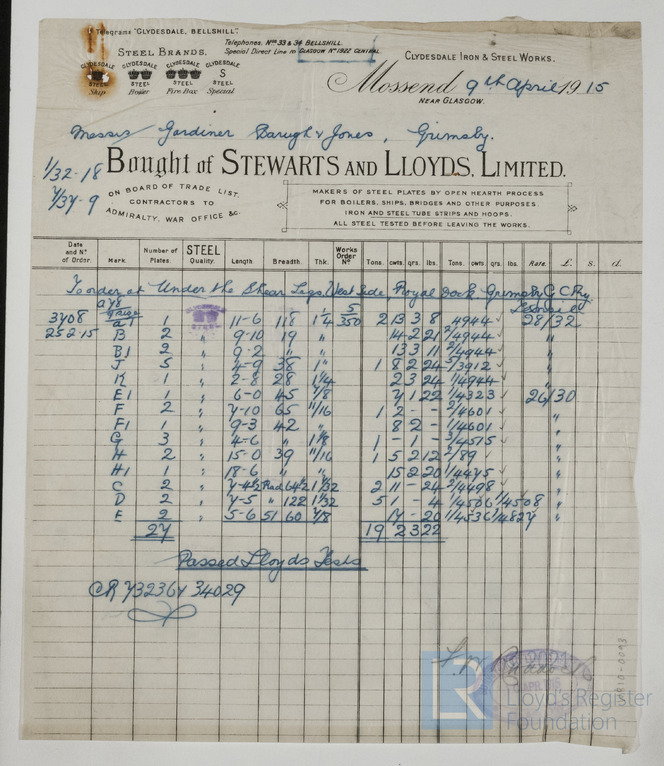 Telegrams "Clydesdale, Bellshill."
Telephones, Nos 33 & 34 Bellshill.
Special Direct Line in Glasgow No 1922 Central.
Steel Brands.
Clydesdale Clydesdale Clydesdale Clydesdale
S
Steel Steel Steel Steel
Ship Boiler Fire Box Special
Clydesdale Iron & Steel Works.
Mossend 9th April 1915
Near Glasgow.
Messrs Gardiner Barugh & Jones, Grimsby.
1/32·18
7/37·9
Bought of Stewarts and Lloyds, Limited.
On Board of Trade List.
Contractors to
Admiralty, War Office &c.
Makers of Steel Plates by Open Hearth Process
for Boilers, Ships, Bridges and Other Purposes.
Iron and Steel Tube Strips and Hoops.
All Steel Tested Before Leaving the Works.
Date and No. of Order. Mark. Number of Plates. Steel Quality. Length. Breadth. Thk. Works Order No Tons. cwts. qrs. lbs. Tons. cwts. qrs. lbs. Rate. £. s. d.
To order at Under the Shear Legs, West Side, Royal Dock Grimsby G.C.Ry.
3708 1 11-6 118 1¼ 5/350 2 13 3 8 4944 28/32
25 2·15 B 2 " 9-10 19 " 14 2 21 2/4944 "
B1 2 " 9-2 " " 13 3 11 2/4944 "
J 5 " 4-9 38 1" 1 8 2 24 5/3912 "
K 1 " 2-8 28 1¼ 2 3 24 1/4944 "
E1 1 " 6-0 45 7/8 7 1 22 1/4323 26/30
F 2 " 7-10 65 11/16 1 2 - - 2/4601 "
F1 1 " 9-3 42 " 8 2 - 1/4601 "
G 3 " 4-6 " 1 - 1 - 3/4575 "
H 2 " 15-0 39 11/16 1 5 2 12 2/89 "
H1 1 " 18-6 " " 15 2 20 1/4475 "
C 2 " 7-4½ Rad 64½ 1 1/32 2 11 - 24 2/4498 "
D 2 " 7-5 " 122 1 1/32 5 1 - 4 1/4506 1/4508 "
E 2 " 5-6 51 60 7/8 17 - 20 1/4536 1/4827 "
27 19 2 3 22
Passed Lloyds Tests
CR 73236Y 34029
Lloyd's Register
Foundation
LR